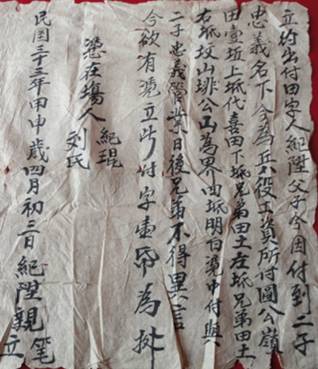 立竹出付田字人紀陞父子今因付到二子
忠義名下今為兵役工資所付圖公嶺
田壹坵上坻代喜田下坻兄弟田土左坻兄弟田土
右坻坟山堋公山為界四坻明白凴中付與
二子忠義管業日後兄弟不得異言
今欲有凴立此付字壹帋為據
凴在塲人 紀琨
刘氏
民国三十三年甲申歲四月初三日紀陞親笔立